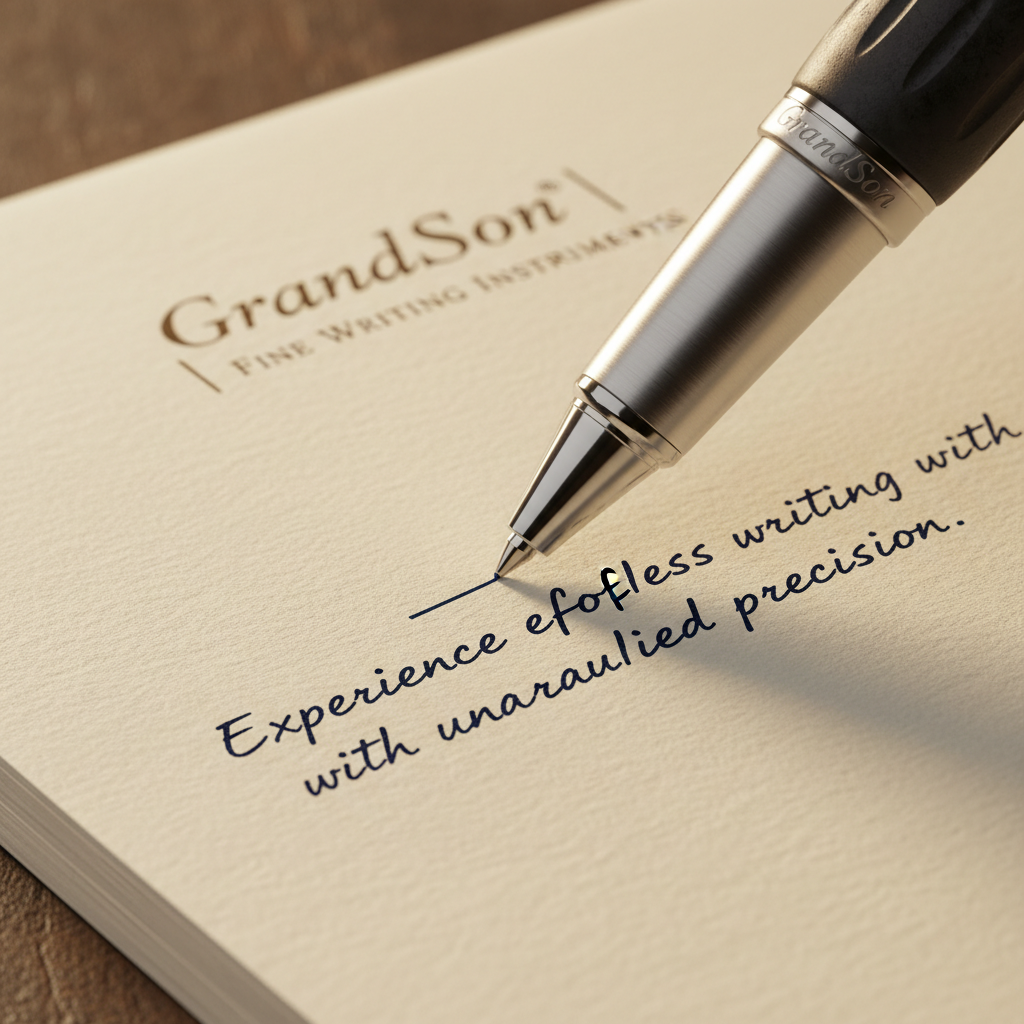 GrandSon®
| FINE WRITING INSTRUMENTS |
GrandSon
Experience efofless writing with
with unaraulied precision.